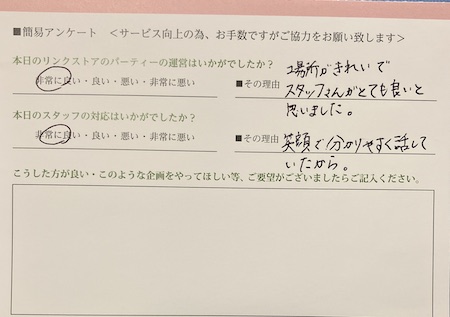 ■簡易アンケート <サービス向上の為、お手数ですがご協力をお願い致します>
本日のリンクストアのパーティーの運営はいかがでしたか?
非常に良い・良い・悪い・非常に悪い
■その理由
場所がきれいで
スタッフさんがとても良いと
思いました。
本日のスタッフの対応はいかがでしたか?
非常に良い・良い・悪い・非常に悪い
■その理由
笑顔で分かりやすく話して
いたから。
こうした方が良い・このような企画をやってほしい等、ご要望がございましたらご記入ください。